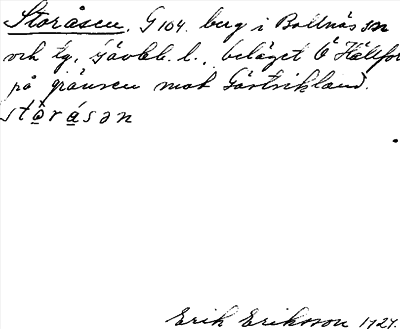 Storåsen. G 104. berg i Bollnäs sn
och tg. Gävleb. l., beläget Ö Hällfor
på gränsen mot Gästrikland.
stòråsən
Erik Eriksson 1927.